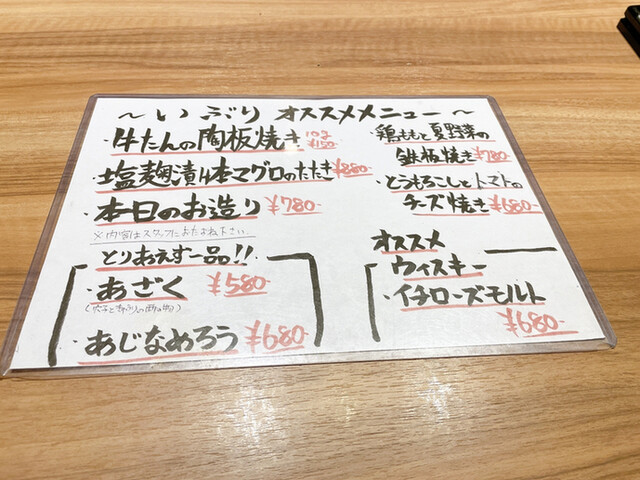 ～いぶり オススメメニュー～
・牛たんの陶板焼き 10g ¥150
・塩麹漬け本マグロのたたき ¥880
・本日のお造り ¥780-
※内容はスタッフにおたずね下さい。
とりあえず一品!!
・あざく ¥580-
(穴子ときゅうりの酢の物)
・あじなめろう ¥680-
・鶏ももと夏野菜の
鉄板焼き ¥780-
・とうもろこしとトマトの
チーズ焼き ¥680-
オススメ
ウィスキー
・イチローズモルト
¥680-